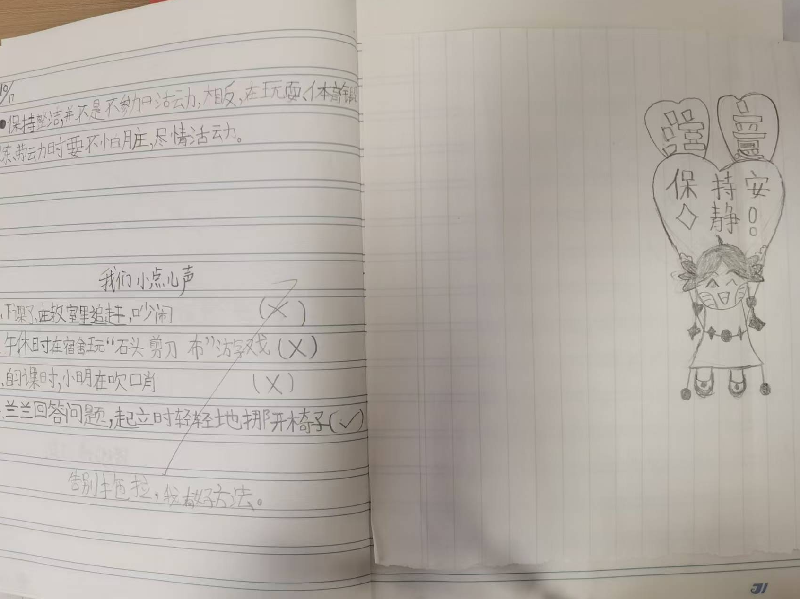 10/17
●保持整洁,并不是不参加活动,相反,在玩耍、体育锻
炼、劳动时要不怕脏,尽情活动。
我们小点儿声
下课了,在教室里追赶,吵闹 (×)
午休时在宿舍玩“石头 剪刀 布”游戏 (×)
自习课时,小明在吹口哨 (×)
兰兰回答问题,起立时轻轻地挪开椅子(✓)
告别 ,我 好方法。
保持安
静
31